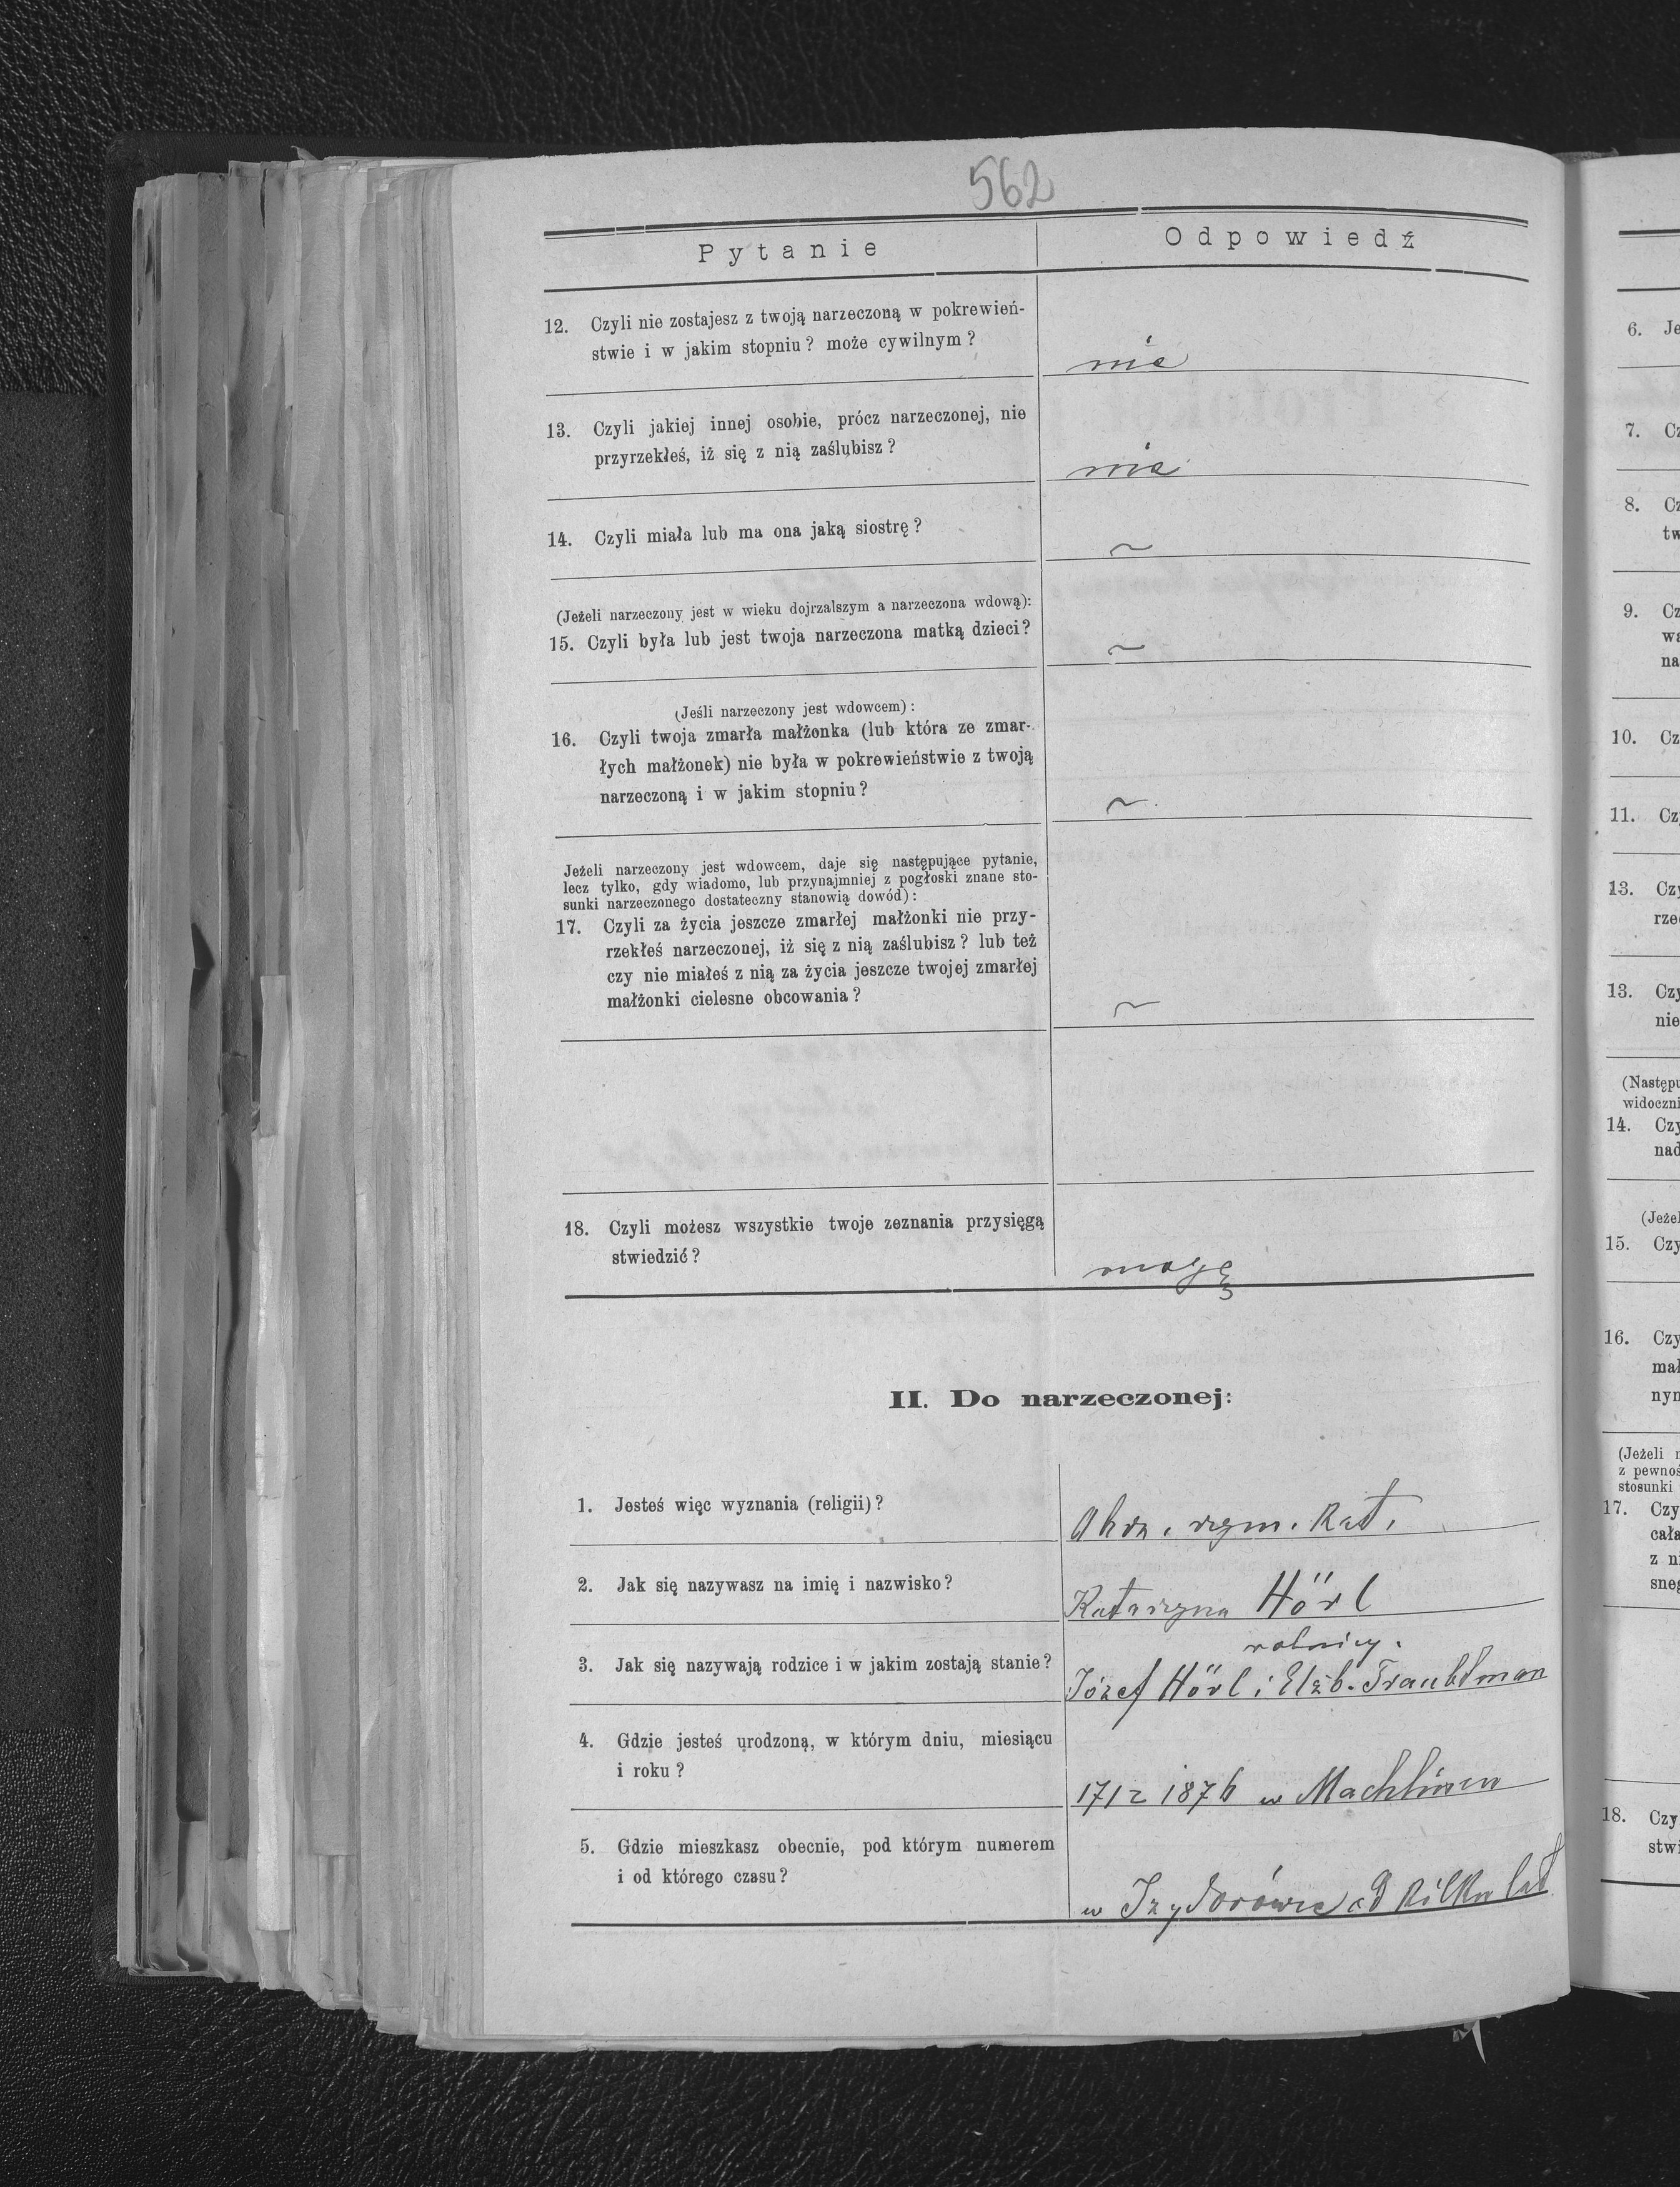 562
Pytanie
Odpowiedź
12. Czyli nie zostajesz z twoją narzeczoną w pokrewień-
stwie i w jakim stopniu? może cywilnym?
nie
13. Czyli jakiej innej osobie, prócz narzeczonej, nie
przyrzekłeś, iż się z nią zaślubisz?
nie
14. Czyli miała lub ma ona jaką siostrę?
~
(Jeżeli narzeczony jest w wieku dojrzalszym a narzeczona wdową):
15. Czyli była lub jest twoja narzeczona matką dzieci?
~
(Jeśli narzeczony jest wdowcem):
16. Czyli twoja zmarła małżonka (lub która ze zmar-
łych małżonek) nie była w pokrewieństwie z twoją
narzeczoną i w jakim stopniu?
~
Jeżeli narzeczony jest wdowcem, daje się następujące pytanie,
lecz tylko, gdy wiadomo, lub przynajmniej z pogłoski znane sto-
sunki narzeczonego dostateczny stanowią dowód):
17. Czyli za życia jeszcze zmarłej małżonki nie przy-
rzekłeś narzeczonej, iż się z nią zaślubisz? lub też
czy nie miałeś z nią za życia jeszcze twojej zmarłej
małżonki cielesne obcowania?
~
18. Czyli możesz wszystkie twoje zeznania przysięgą
stwiedzić?
mogę
II. Do narzeczonej:
1. Jesteś więc wyznania (religii)?
Obrz. rzym. Kat.
2. Jak się nazywasz na imię i nazwisko?
Katarzyna Hörl
3. Jak się nazywają rodzice i w jakim zostają stanie?
rolnicy.
Józef Hörl i Elżb.
4. Gdzie jesteś urodzoną, w którym dniu, miesiącu
i roku?
1876 w
5. Gdzie mieszkasz obecnie, pod którym numerem
i od którego czasu?
w Izydorówce od kilku lat
6. Je
7. Cz
8. Cz
tw
9. Cz
wa
na
10. Cz
11. Cz
13. Czy
rze
13. Czy
nie
(Następu
widoczni
14. Czy
nad
(Jeżel
15. Czy
16. Czy
mał
nym
(Jeżeli
z pewnoś
stosunki
17. Czy
cała
z n
sneg
18. Czy
stwi